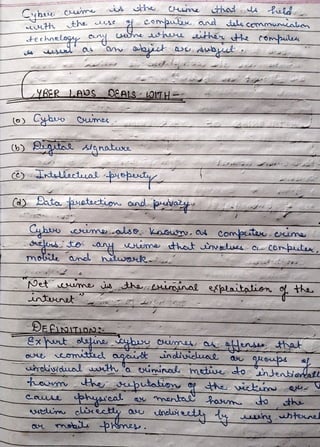 Cyber crime is the crime that is held
with the use of computer and telecommunication
technology any crime where either the computer
is used as an object or subject.
CYBER LAWS DEALS WITH -
(a) Cyber crimes
(b) Digital signature
(c) Intellectual property
(d) Data protection and privacy
Cyber crime also known as computer crime
refers to any crime that involves a computer,
mobile and network.
"Net crime is the criminal exploitation of the
internet"
DEFINITION:-
Expert define cyber crimes as offenses that
are committed against individual or groups of
individual with a criminal motive to intentionally
harm the reputation of the victim or
cause physical or mental harm to the
victim directly or indirectly by using internet
or mobile phones.